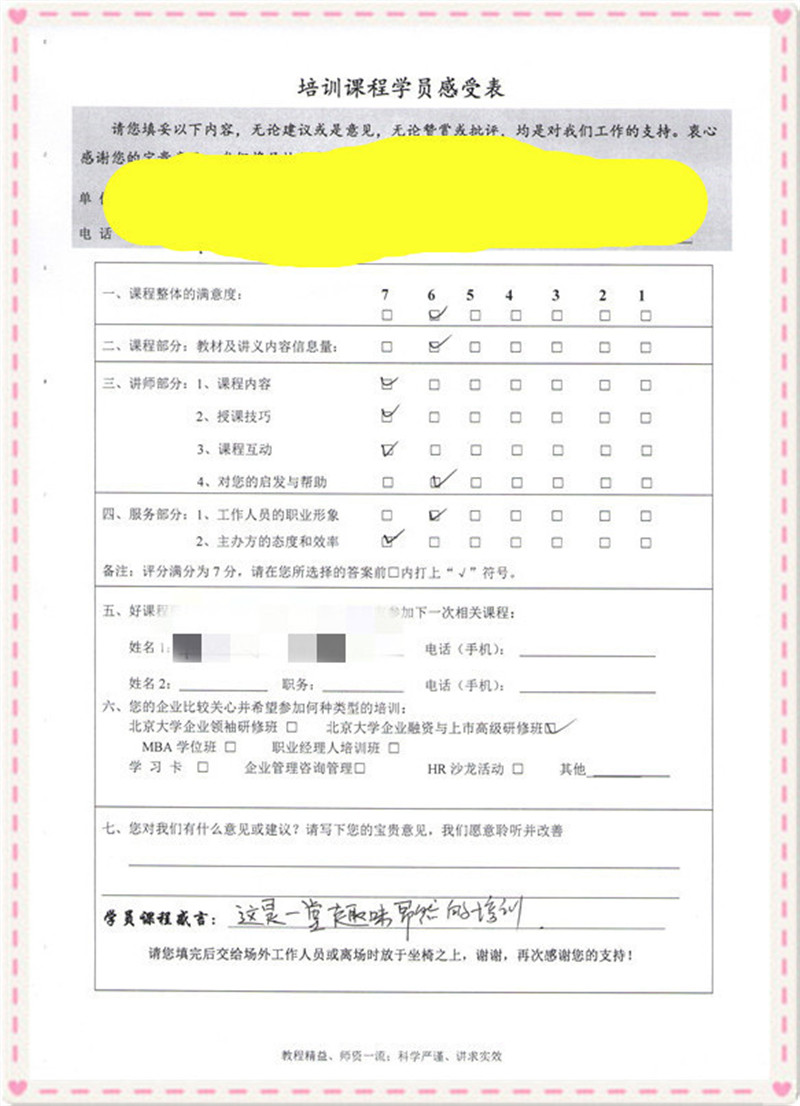 培训课程学员感受表
请您填妥以下内容，无论建议或是意见，无论赞赏或批评，均是对我们工作的支持。衷心
感谢您的宝贵
单
电 话
一、课程整体的满意度： 7 6 5 4 3 2 1
□ ☑ □ □ □ □ □
二、课程部分：教材及讲义内容信息量： □ ☑ □ □ □ □ □
三、讲师部分：1、课程内容 ☑ □ □ □ □ □ □
2、授课技巧 ☑ □ □ □ □ □ □
3、课程互动 ☑ □ □ □ □ □ □
4、对您的启发与帮助 □ ☑ □ □ □ □ □
四、服务部分：1、工作人员的职业形象 □ ☑ □ □ □ □ □
2、主办方的态度和效率 ☑ □ □ □ □ □ □
备注：评分满分为7分，请在您所选择的答案前□内打上“√”符号。
五、好课程 参加下一次相关课程：
姓名1: 电话（手机）：
姓名2: 职务： 电话（手机）：
六、您的企业比较关心并希望参加何种类型的培训：
北京大学企业领袖研修班 □ 北京大学企业融资与上市高级研修班☑
MBA 学位班 □ 职业经理人培训班 □
学 习 卡 □ 企业管理咨询管理□ HR 沙龙活动 □ 其他
七、您对我们有什么意见或建议？请写下您的宝贵意见，我们愿意聆听并改善
学员课程感言： 这是一堂趣味昂然的培训.
请您填完后交给场外工作人员或离场时放于坐椅之上，谢谢，再次感谢您的支持！
教程精益、师资一流；科学严谨、讲求实效